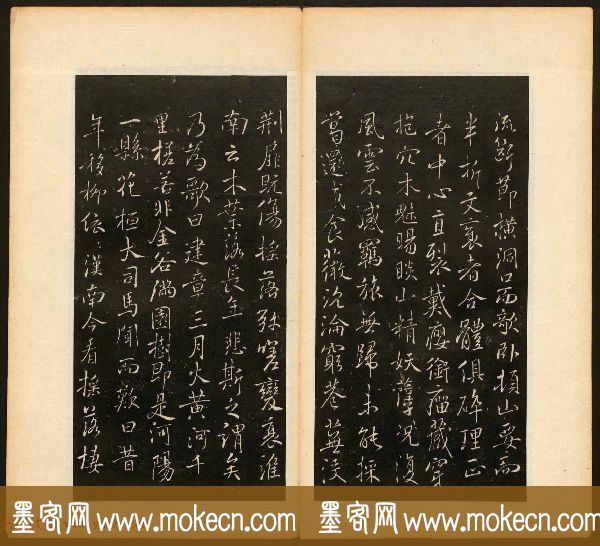 流斷節橫洞口而欹卧頓山妥而
半折文袤者合體俱碎理正
者中心直裂戴癭銜瘤藏穿
抱穴木魅睗睒山精妖孽況復
風雲不感羈旅無歸未能採
葛還成食薇沉淪窮巷蕪沒
荊扉既傷搖落弥嗟變衰淮
南云木葉落長年悲斯之謂矣
乃為歌曰建章三月火黃河千
里槎若非金谷滿園樹即是河陽
一縣花桓大司馬聞而歎曰昔
年移柳依〻漢南今看搖落悽
墨客网 www.mokecn.com 墨客网 www.mokecn.com